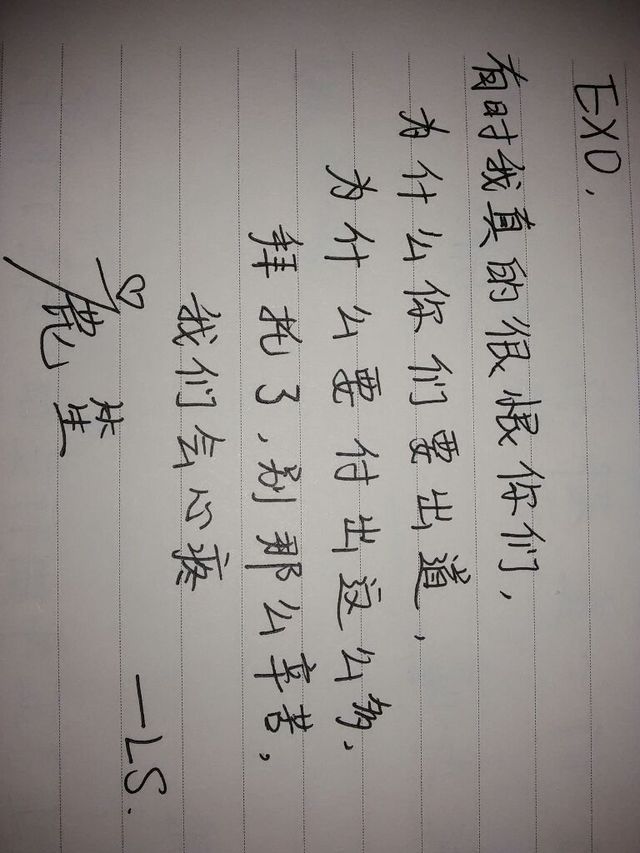 EXO,
有时我真的很恨你们,
为什么你们要出道,
为什么要付出这么多,
拜托了,别那么辛苦,
我们会心疼
—LS.